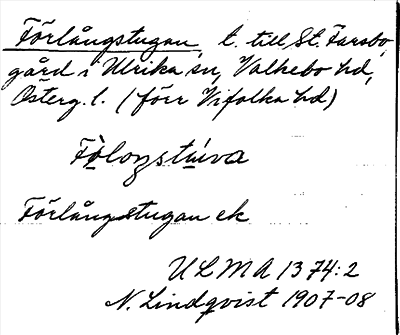 Förlångstugan, t. till St. Farsbo,
gård i Ulrika sn, Valkebo hd,
Österg. l. (förr Vifolka hd)
Fòlongstúva
Förlångstugan ek
ULMA 1374:2
N. Lindqvist 1907-08